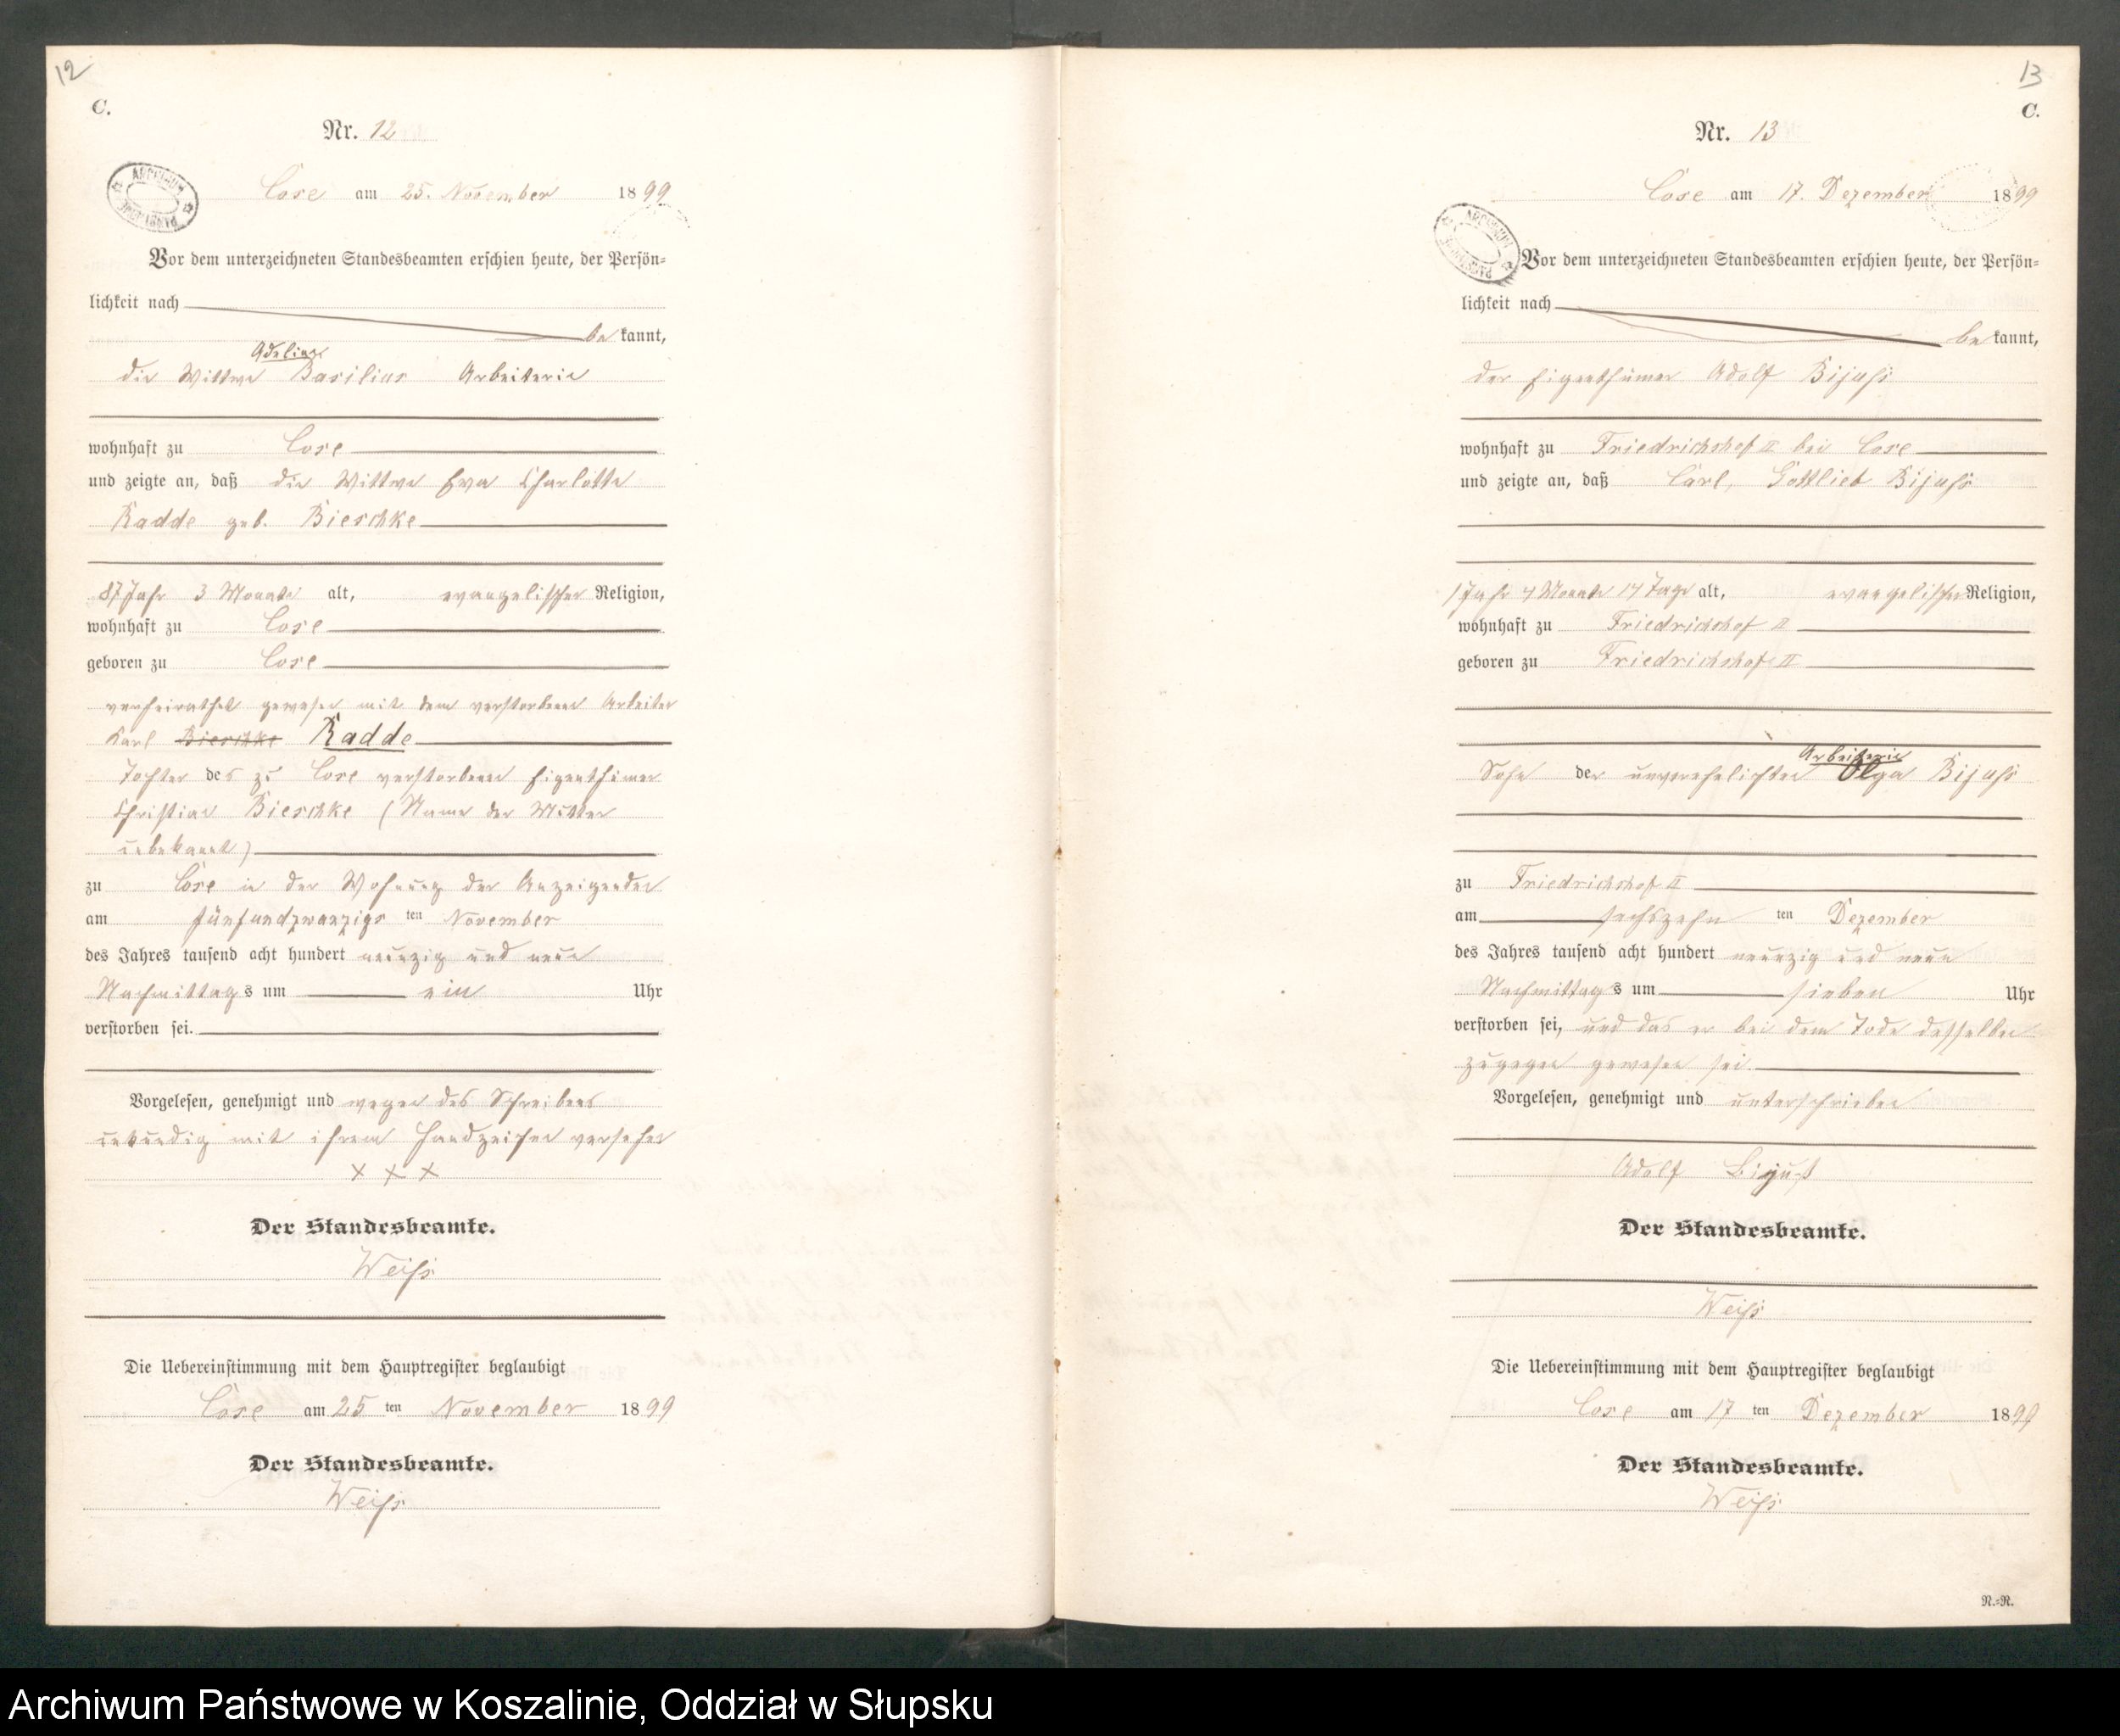 12
C.
Nr. 12
ARCHIWUM PAŃSTWOWE
Cose am 25. November 1899
Vor dem unterzeichneten Standesbeamten erschien heute, der Persön=
lichkeit nach
be kannt,
Adeline
die Wittwe Basilius Arbeiterin
wohnhaft zu Cose
und zeigte an, daß die Wittwe Eva Charlotte
Radde geb. Bieschke
87 Jahr 3 Monate alt, evangelischer Religion,
wohnhaft zu Cose
geboren zu Cose
verheirathet gewesen mit dem verstorbenen Arbeiter
Karl Bieschke Radde
Tochter des zu Cose verstorbenen Eigenthümer
Christian Bieschke (Name der Mutter
unbekannt)
zu Cose in der Wohnung der Anzeigenden
am fünfundzwanzigs ten November
des Jahres tausend acht hundert neunzig und neun
Nachmittags um ein Uhr
verstorben sei.
Vorgelesen, genehmigt und wegen des Schreibens
unkundig mit ihrem Handzeichen versehen
x x x
Der Standesbeamte.
Weiß
Die Uebereinstimmung mit dem Hauptregister beglaubigt
Cose am 25 ten November 1899
Der Standesbeamte.
Weiß
13
C.
Nr. 13
Cose am 17. Dezember 1899
ARCHIWUM PAŃSTWOWE
Vor dem unterzeichneten Standesbeamten erschien heute, der Persön=
lichkeit nach
be kannt,
der Eigenthümer Adolf Bijuhs
wohnhaft zu Friedrichshof II bei Cose
und zeigte an, daß Carl, Gottlieb Bijuhs
1 Jahr 4 Monate 14 Tage alt, evangelischer Religion,
wohnhaft zu Friedrichshof II
geboren zu Friedrichshof II
Arbeiterin
Sohn der unverehelichten Olga Bijuhs
zu Friedrichshof II
am sechszehn ten Dezember
des Jahres tausend acht hundert neunzig und neun
Nachmittags um sieben Uhr
verstorben sei, und das er bei dem Tode desselben
zugegen gewesen sei.
Vorgelesen, genehmigt und unterschrieben
Adolf Bijuß
Der Standesbeamte.
Weiß
Die Uebereinstimmung mit dem Hauptregister beglaubigt
Cose am 17 ten Dezember 1899
Der Standesbeamte.
Weiß
N.=R.
Archiwum Państwowe w Koszalinie, Oddział w Słupsku